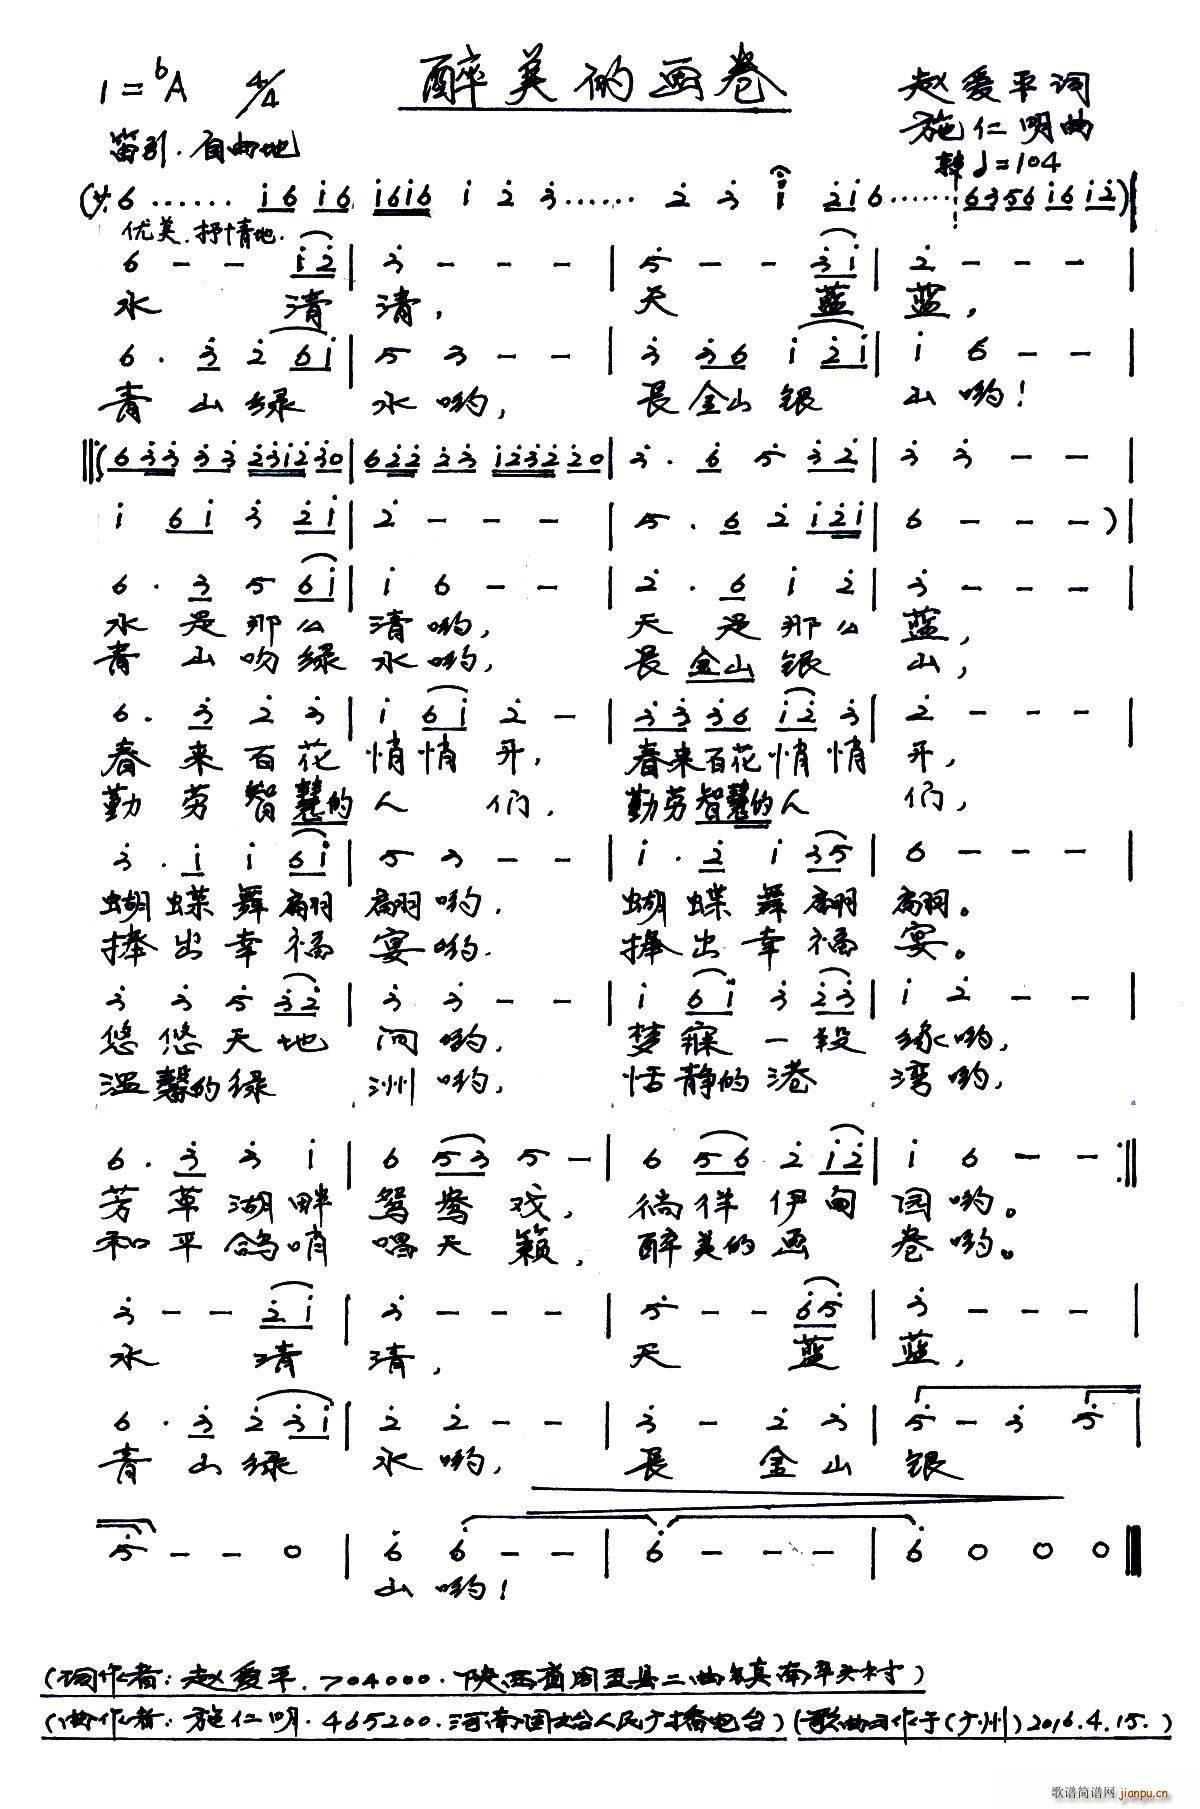 醉美的画卷
1=♭A 4/4
赵爱平词
施仁明曲
笛引.自由地
♩=104
(サ 6······ i6 i6 i6i6 i 2 3······ 2 3 i 2i6······ 6356 i6 i2)
优美.抒情地.
6 - - i2 | 3 - - - | 5 - - 3i | 2 - - - |
水 清 清, 天 蓝 蓝,
6. 3 2 6i | 5 3 - - | 3 36 i 2i | i 6 - - |
青山绿 水哟, 是金山银 山哟!
‖:(633 33 2312 30 | 622 23 1232 20 | 3. 6 5 32 | 3 3 - - |
i 6i 3 2i | 2 - - - | 5. 6 2 i2i | 6 - - - )|
6. 3 5 6i | i 6 - - | 2. 6 i 2 | 3 - - - |
水是那么 清哟, 天是那么 蓝,
青山吻绿 水哟, 是金山银 山,
6. 3 2 3 | i 6i 2 - | 33 36 i2 3 | 2 - - - |
春来百花 悄悄开, 春来百花悄悄 开,
勤劳智慧的 人们, 勤劳智慧的人 们,
3. i i 6i | 5 3 - - | i. 2 i 35 | 6 - - - |
蝴蝶舞翩 翩哟. 蝴蝶舞翩 翩。
捧出幸福 宴哟. 捧出幸福 宴。
3 3 5 32 | 3 3 - - | i 6i 3 23 | i 2 - - |
悠悠天地 间哟, 梦寐一段 缘哟,
温馨的绿 洲哟, 恬静的港 湾哟,
6. 3 3 i | 6 53 5 - | 6 56 2 i2 | i 6 - - :‖
芳草湖畔 鸳鸯戏, 徜徉伊甸 园哟。
和平鸽哨 唱天籁, 醉美的画 卷哟。
3 - - 2i | 3 - - - | 5 - - 65 | 3 - - - |
水 清 清, 天 蓝 蓝,
6. 3 2 3i | 2 2 - - | 3 - 2 3 | 5 - 3 5 |
青山绿 水哟, 是 金山 银
5 - - 0 | 6 6 - - | 6 - - - | 6 0 0 0 ‖
山哟!
(词作者:赵爱平.704000.陕西省周至县二曲镇南平头村)
(曲作者:施仁明.465200.河南固始人民广播电台)(歌曲习作于(广州)2016.4.15.)
歌谱简谱网
jianpu.cn